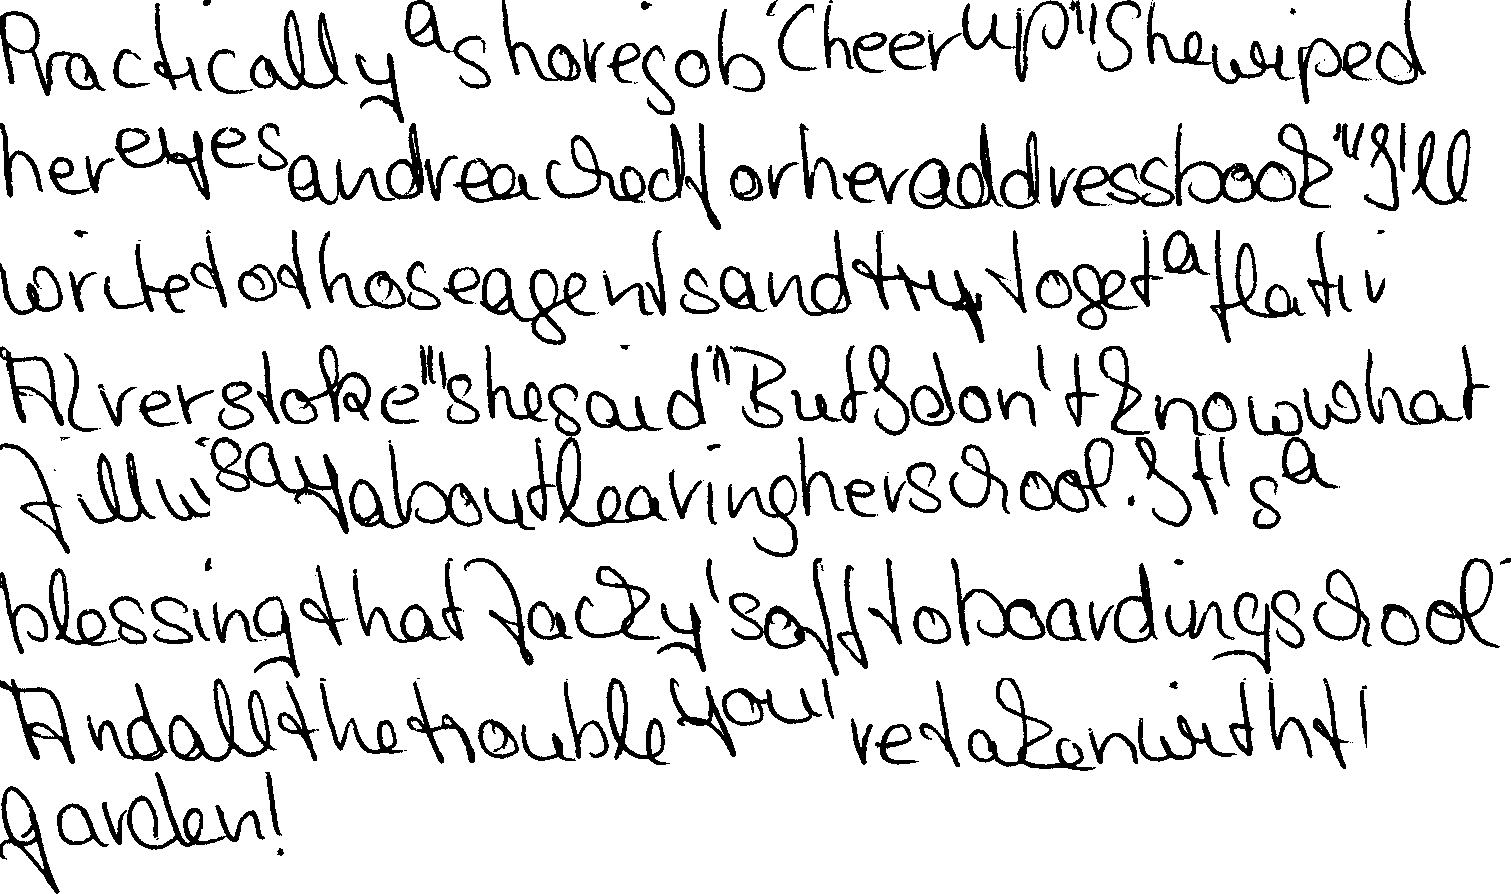 Practically a shore job "Cheer up" She wiped
her eyes and reached for her address book "I'll
write to those agents and try to get a flat in
Alverstoke" she said "But I don't know what
Jill'll say about leaving her school. It's a
blessing that Jacky's off to boarding school
And all the trouble you've taken with
garden!